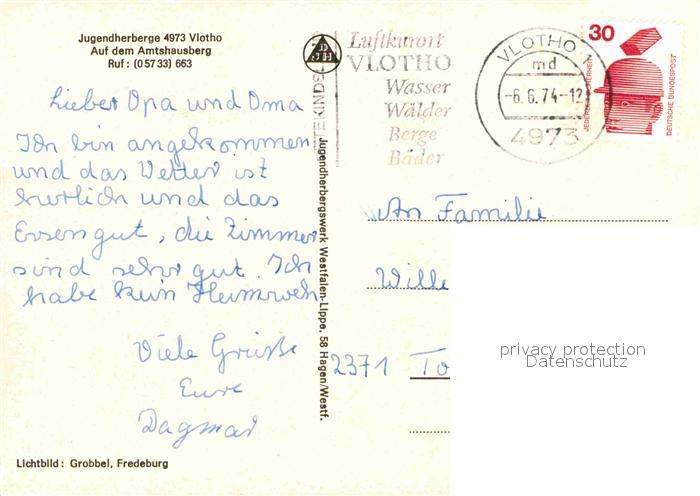 Jugendherberge 4973 Vlotho
Auf dem Amtshausberg
Ruf: (05733) 663
Lieber Opa und Oma
Ich bin angekommen
und das Wetter ist
herlich und das
Essen gut, die Zimmer
sind sehr gut. Ich
habe kein Heimweh
Viele Grüße
Eure
Dagmar
Lichtbild: Grobbel, Fredeburg
Jugendherbergswerk Westfalen-Lippe, 58 Hagen/Westf.
Luftkurort
VLOTHO
Wasser
Wälder
Berge
Bäder
VLOTHO 1
md
-6.6.74-12
4973
30
DEUTSCHE BUNDESPOST
An Familie
Wille
2371 To
privacy protection
Datenschutz